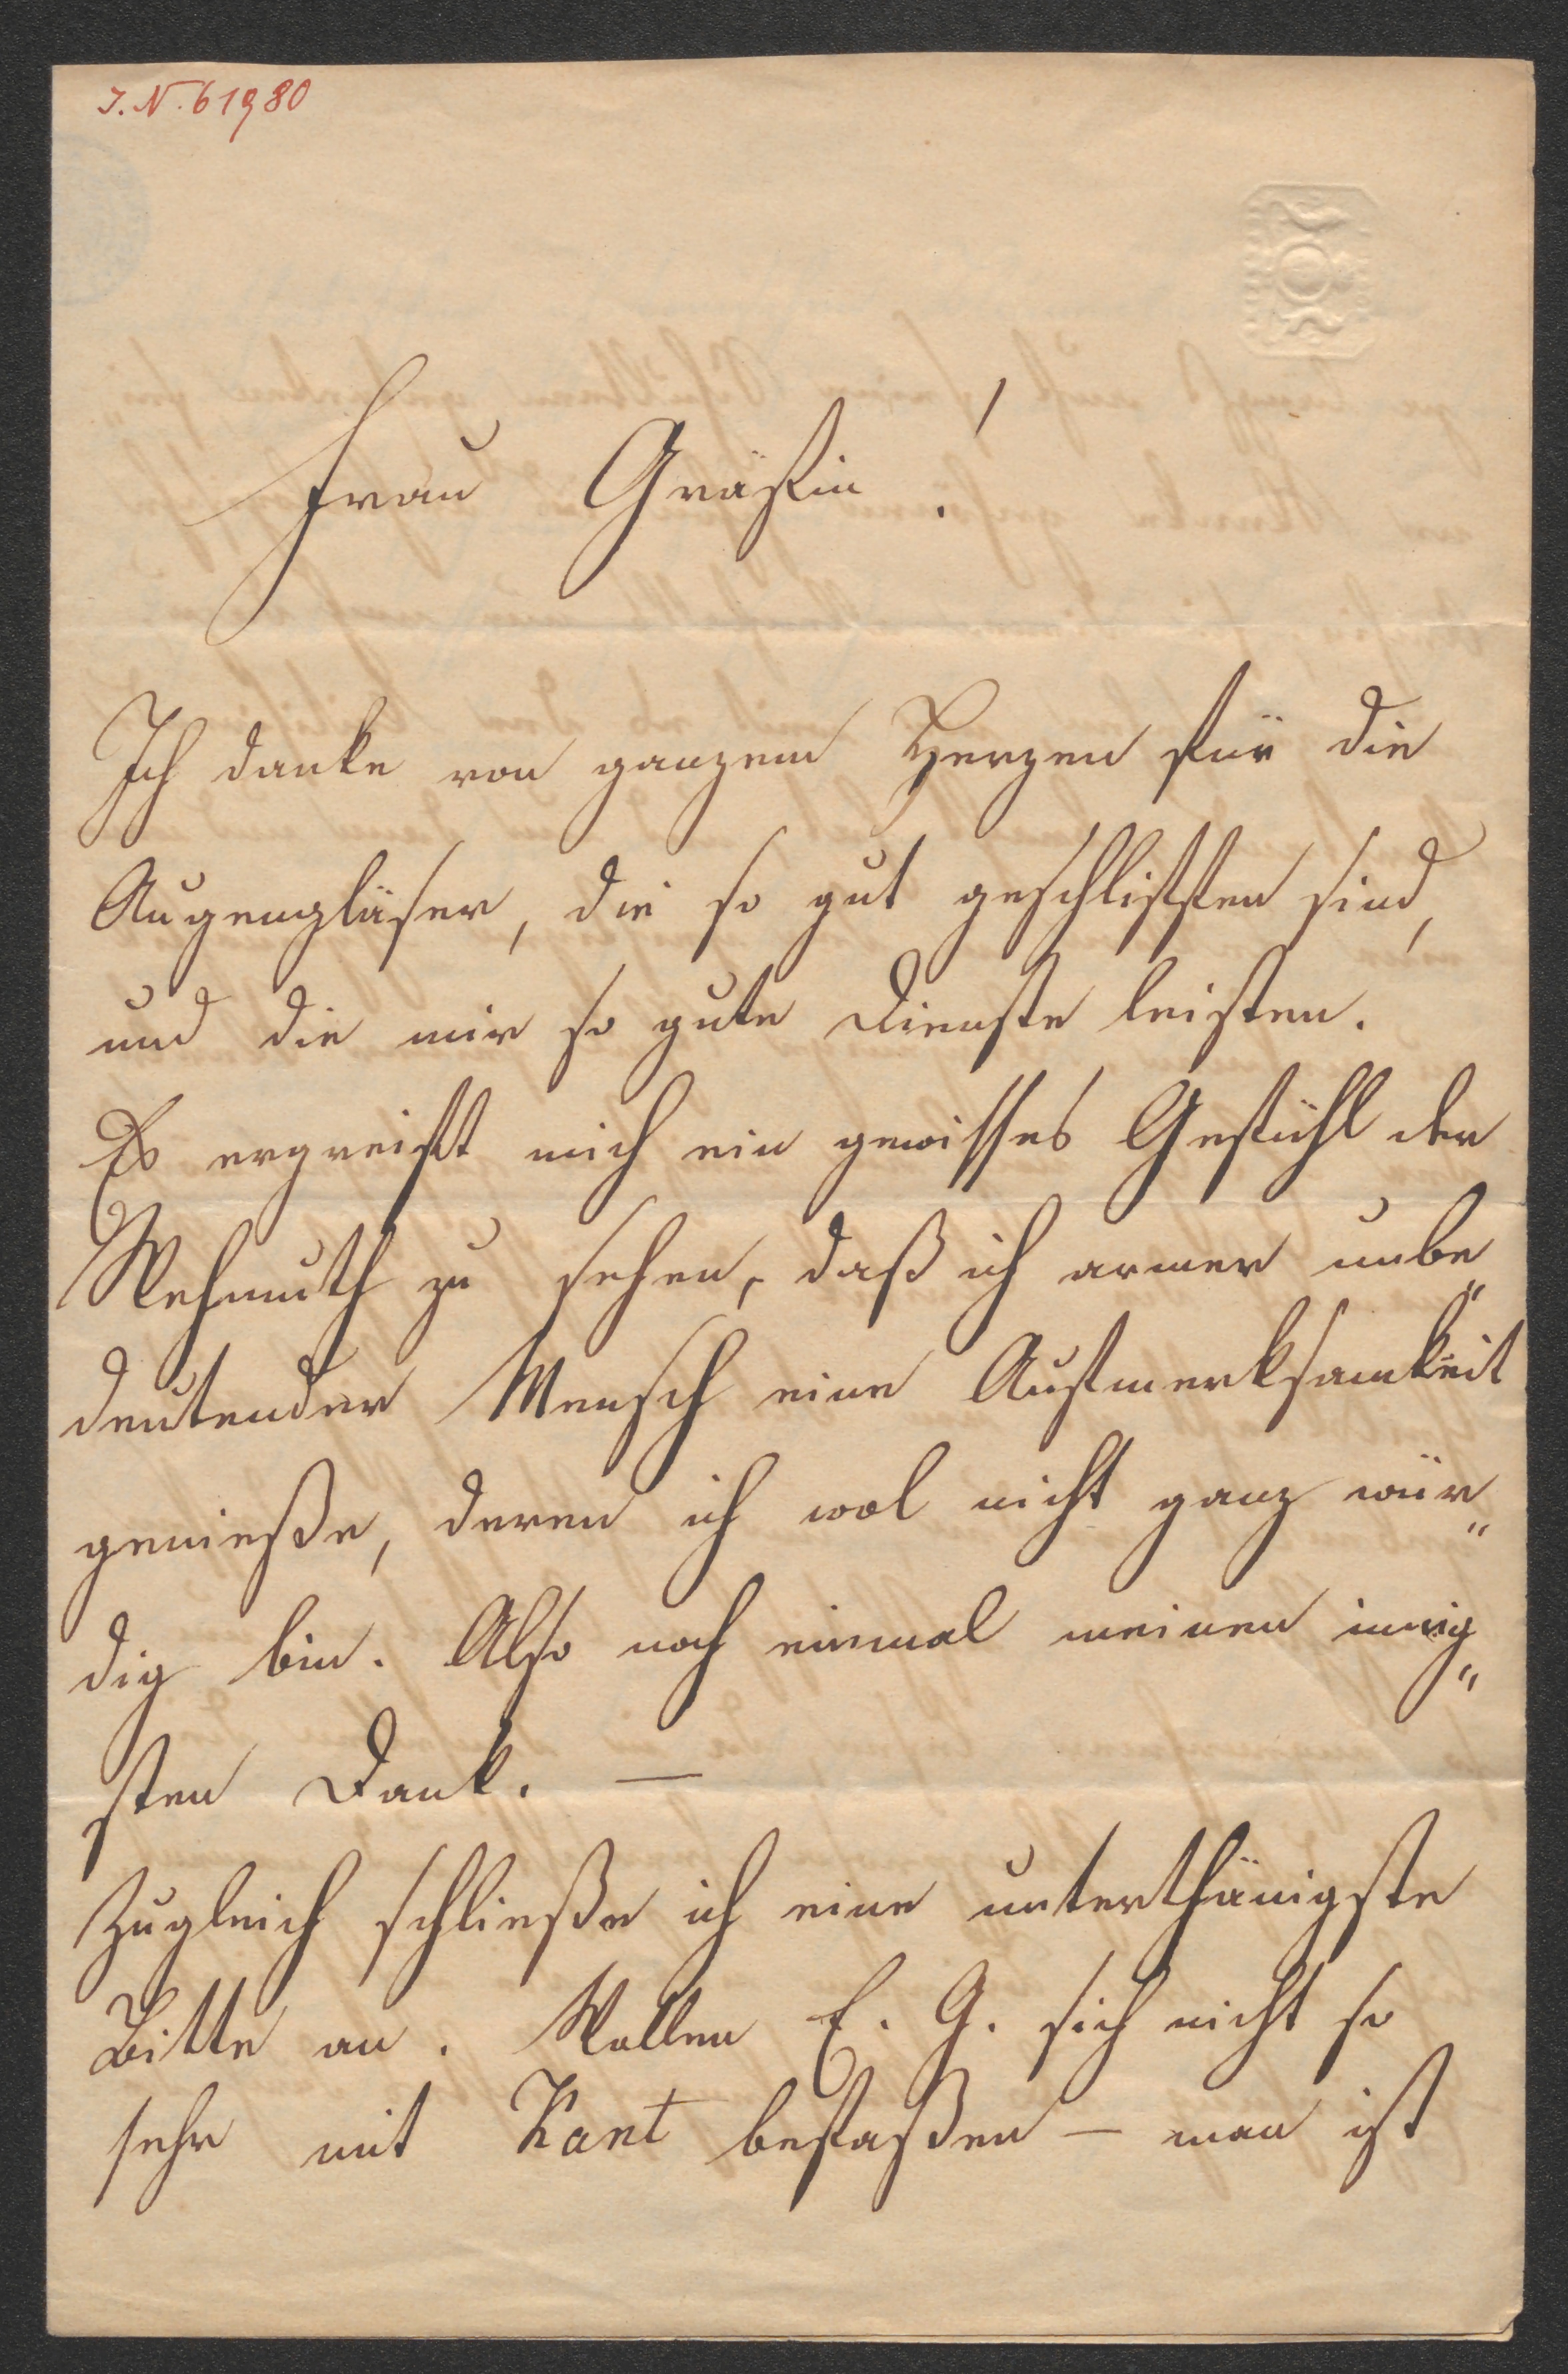 J.N. 61980
Frau Gräfin!
Ich danke von ganzem Herzen für die
Augengläser, die so gut geschliffen sind,
und die mir so gute Dienste leisten.
Es ergreift mich ein gewisses Gefühl der
Wehmuth zu sehen, daß ich armer unbe„
deutender Mensch eine Aufmerksamkeit
genieße, deren ich wol nicht ganz wür„
dig bin. Also noch einmal meinen innig„
sten Dank. —
Zugleich schließe ich eine unterthänigste
Bitte an. Wollen E. G. sich nicht so
sehr mit Kant befaßen — man ist